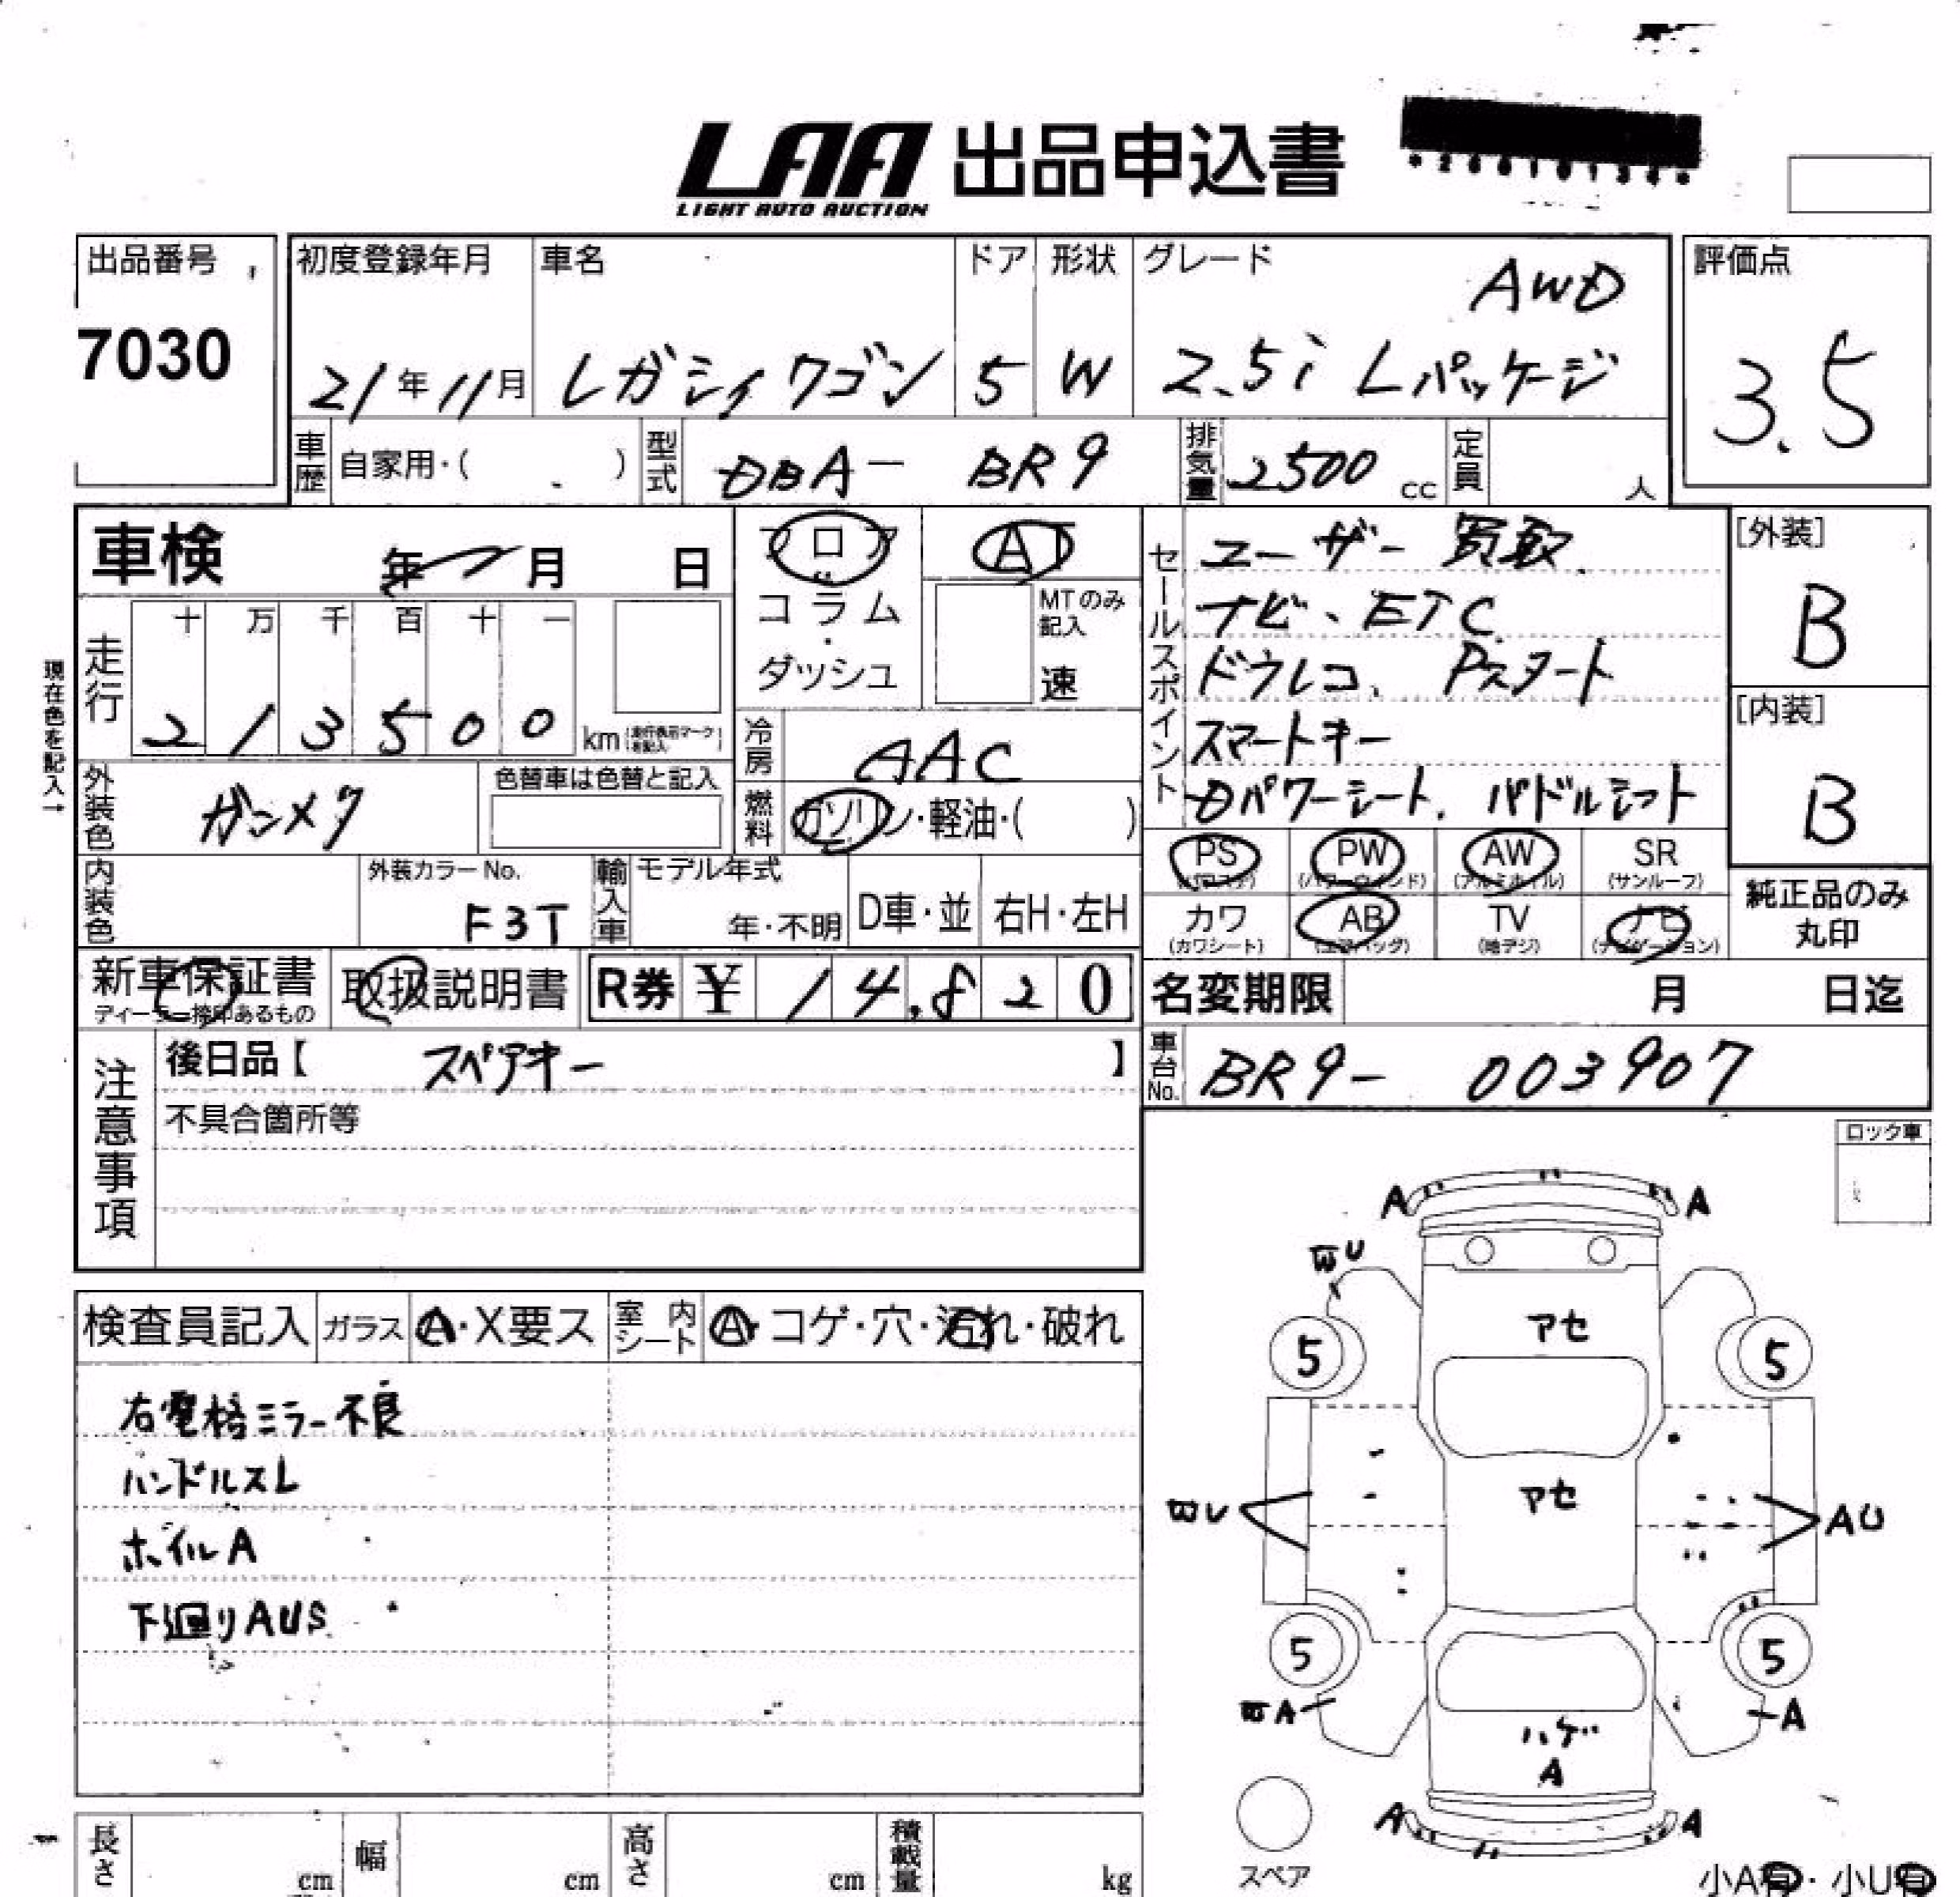 LAA 出品申込書
LIGHT AUTO AUCTION
出品番号
7030
初度登録年月 車名 ドア 形状 グレード
AWD
21年11月 レガシィワゴン 5 W 2.5i Lパッケージ
評価点
3.5
車歴 自家用・( ) 型式 DBA- BR9 排気量 2500 cc 定員 人
車検 年 月 日
フロア
コラム
・
ダッシュ
AT
MTのみ記入
速
走行 十 万 千 百 十 一
2 1 3 5 0 0 km
現在色を記入→
冷房 AAC
燃料 ガソリン・軽油・( )
外装色 ガンメタ
色替車は色替と記入
内装色
外装カラーNo.
F3T
輸入車 モデル年式
年・不明 D車・並 右H・左H
セールスポイント
ユーザー買取
ナビ、ETC
ドラレコ、Pスタート
スマートキー
Dパワーシート、パドルシフト
[外装]
B
[内装]
B
PS PW AW SR
(パワステ) (パワーウインド) (アルミホイル) (サンルーフ)
カワ AB TV ナビ
(カワシート) (エアバッグ) (地デジ) (ナビゲーション)
純正品のみ
丸印
新車保証書 取扱説明書 R券 ¥ 14,820
名変期限 月 日迄
車台No. BR9- 003907
注意事項
後日品【 スペアキー 】
不具合箇所等
ロック車
検査員記入 ガラス A・X要ス 室内シート A・コゲ・穴・汚れ・破れ
右電格ミラー不良
ハンドルスレ
ホイルA
下廻りAUS
A A
U
アセ
5 5
アセ
U AU
5 5
A A
ハゲ
A
A A
スペア
小A有・小U有
長さ cm 幅 cm 高さ cm 積載量 kg